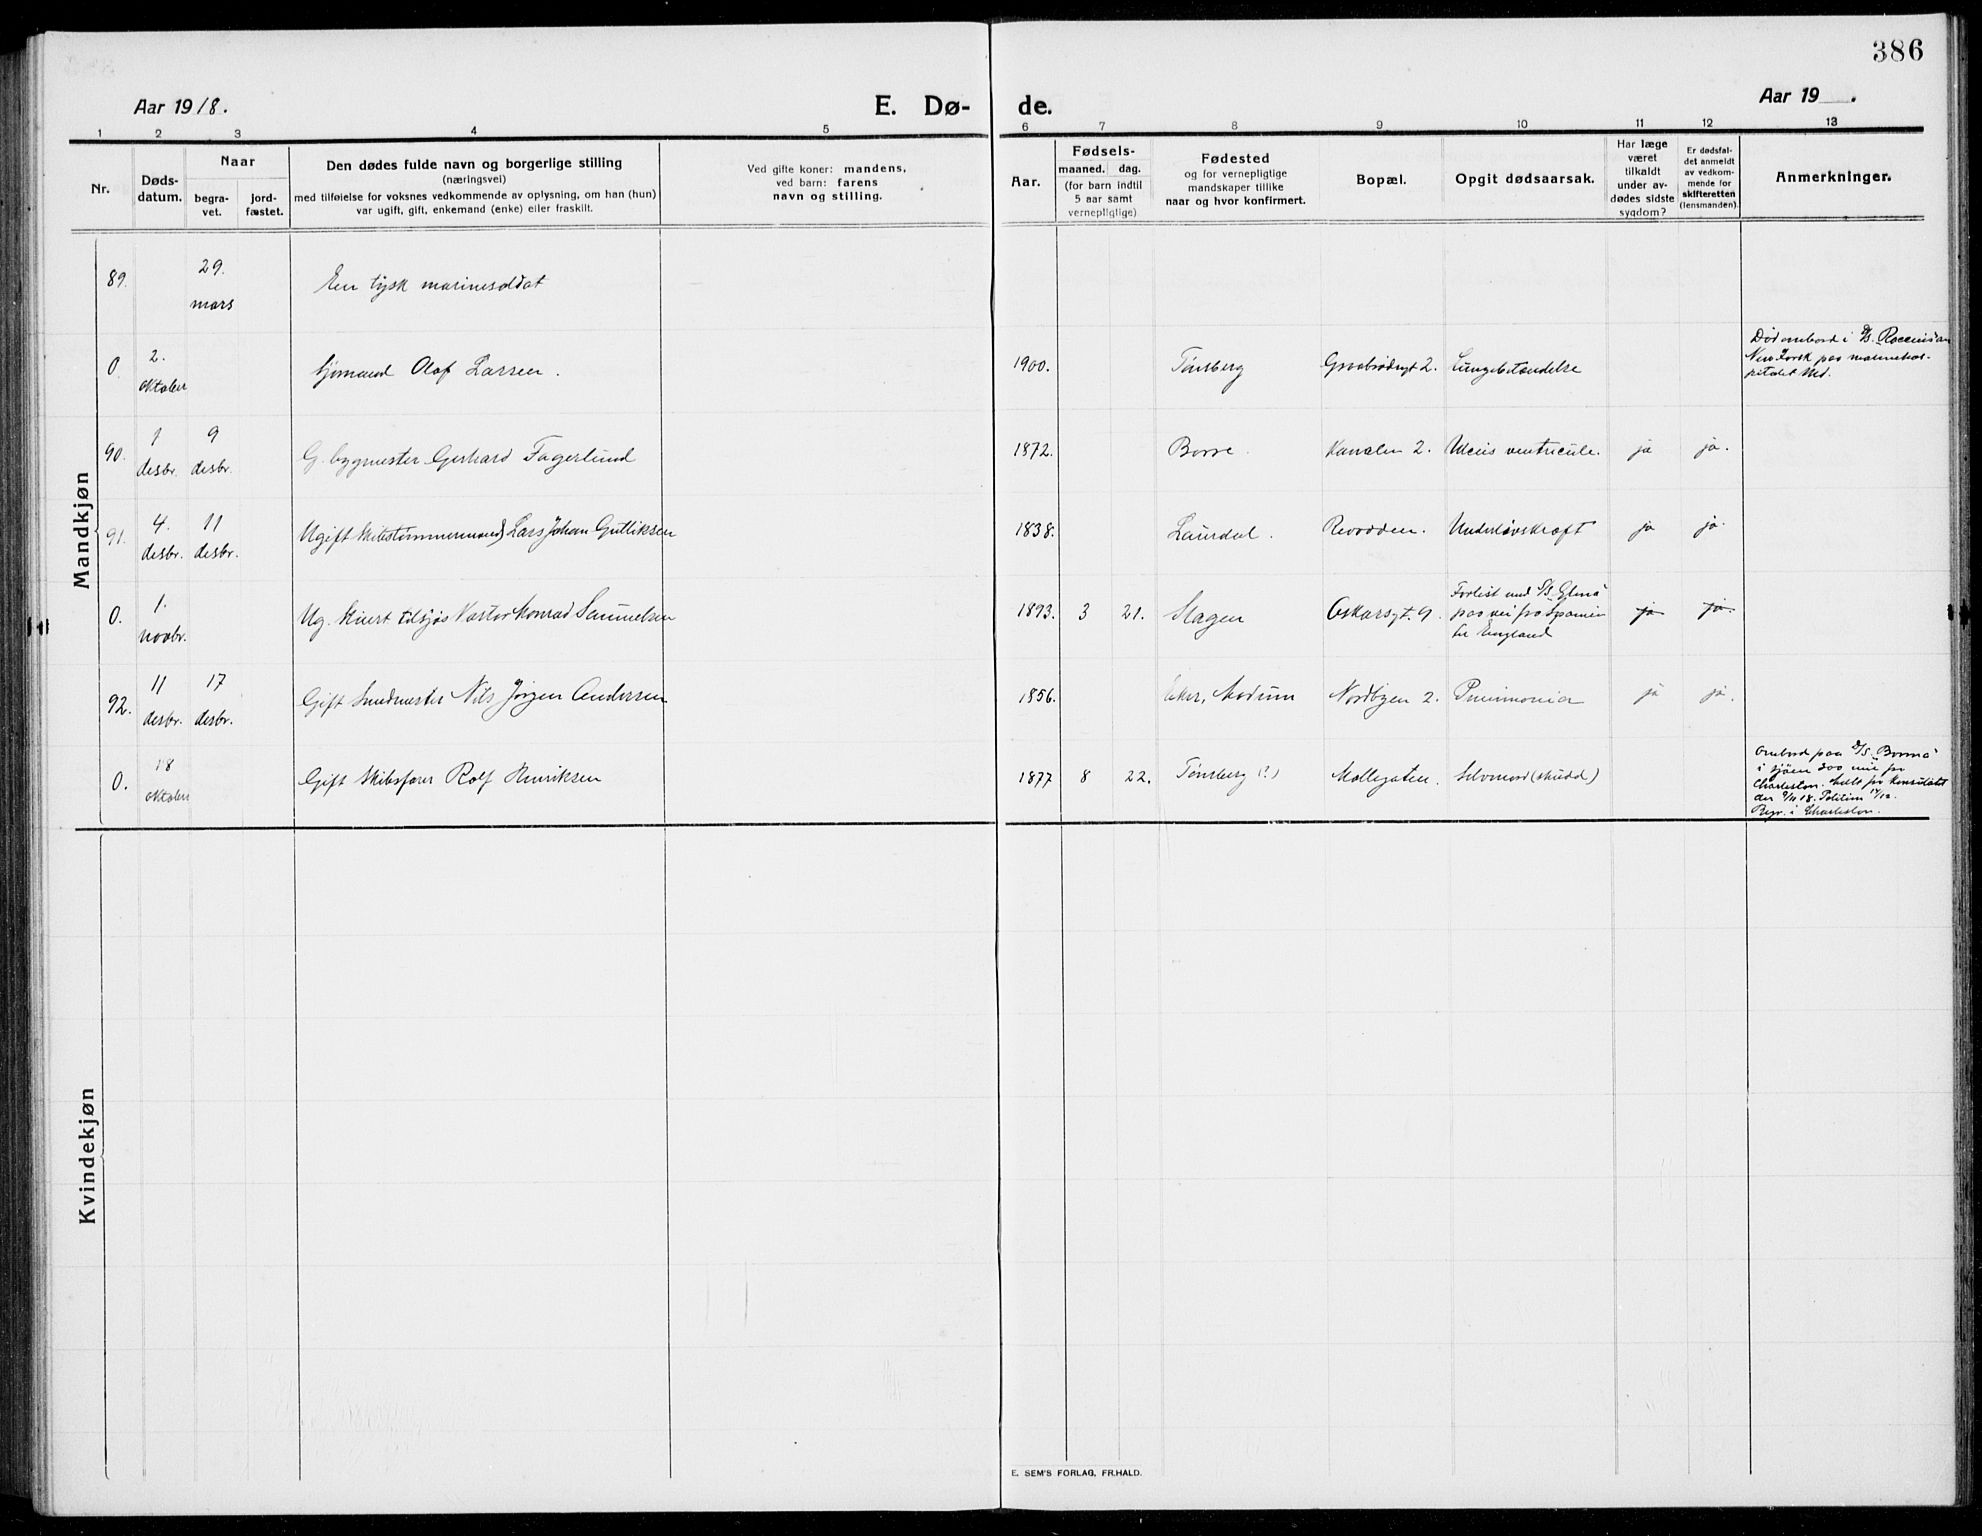 386
Aar 1918.
E. Dø-
de.
Aar 19 .
1 2 3 4 5 6 7 8 9 10 11 12 13
Nr.
Døds-
datum.
Naar
begra-
vet.
jord-
fæstet.
Den dødes fulde navn og borgerlige stilling
(næringsvei)
med tilføielse for voksnes vedkommende av oplysning, om han (hun)
var ugift, gift, enkemand (enke) eller fraskilt.
Ved gifte koner: mandens,
ved barn: farens
navn og stilling.
Aar.
Fødsels-
maaned. dag.
(for barn indtil
5 aar samt
vernepligtige)
Fødested
og for vernepligtige
mandskaper tillike
naar og hvor konfirmert.
Bopæl.
Opgit dødsaarsak.
Har læge
været
tilkaldt
under av-
dødes sidste
sygdom?
Er dødsfal-
det anmeldt
av vedkom-
mende for
skifteretten
(lensmanden).
Anmerkninger.
Mandkjøn
89. 29. mars En tysk marinesoldat
0. 2. oktober Sjømand Olaf Larsen. 1900. Tønsberg Graabrødregt 2. Lungebetændelse
Død ombord i D/S
New York paa marinehos-
pitalet
90. 1 desbr. 9 desbr. G. bygmester Gerhard Fagerlund 1872. Borre. Kanalen 2. Ulcus ventricule. ja ja.
91. 4. desbr. 11 desbr. Ugift Skibstømmermand Lars Johan Gulliksen 1838. Laurdal. Revodden. Underlivskræft ja ja.
0. 1. novbr. Ug. Stuert tilsjøs Konrad Samuelsen 1893. 3 21. Slagen Oskarsgt. 9.
Forlist med S/S
paa vei fra Spanien
til England
ja ja.
92. 11 desbr. 17 desbr. Gift Smedmester Nils Jørgen Andersen 1856. Eker, Modum Nordbyen 2. Pneumonia ja ja.
0. 18 oktober Gift Skibsfører Rolf Henriksen 1877 8 22. Tønsberg (?) Møllegaten. Selvmord (skudd)
Ombord paa D/S
i sjøen 300 mil fra
Charleston. Meldt fra Konsulatet
Begr. i Charleston.
Kvindekjøn
E. SEM'S FORLAG, FR.HALD.